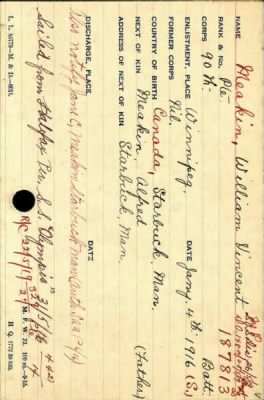 NAME Meakin, William Vincent
RANK & No. Pte 187883
CORPS 90th Batt.
ENLISTMENT, PLACE Winnipeg. DATE Jany 4th 1916
FORMER CORPS Nil
COUNTRY OF BIRTH Canada, Starbuck, Man.
NEXT OF KIN Meakin, Alfred (Father)
ADDRESS OF NEXT OF KIN Starbuck, Man
Also notify
DISCHARGE, PLACE DATE
Sailed from Halifax Per S.S. Olympic 31/5/16
M. F. W. 22.
L. L. 
H. Q. 1772 39